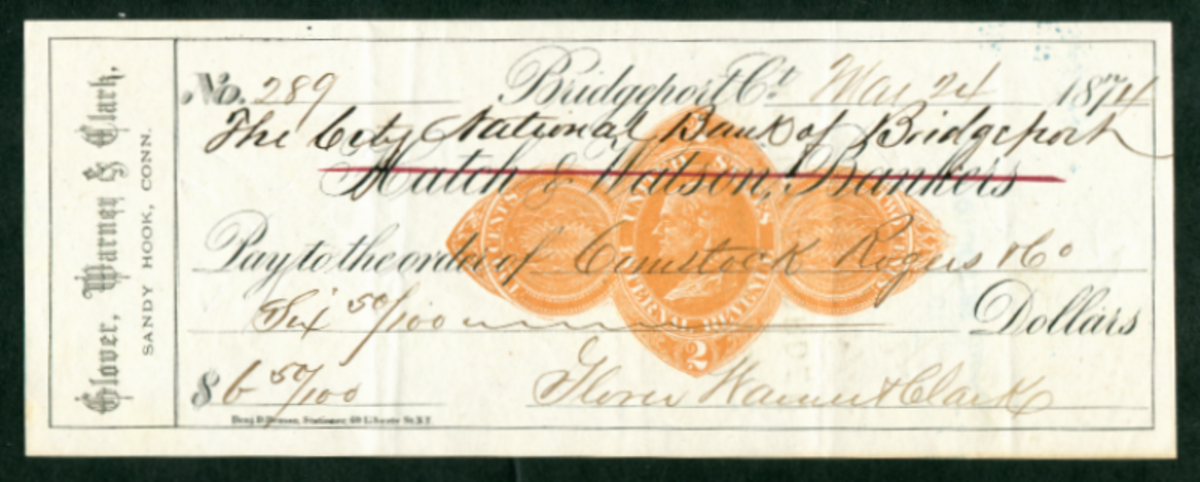 Glover, Warner & Clark,
SANDY HOOK, CONN.
No. 289 Bridgeport Ct. Mar 24 1874
The City National Bank of Bridgeport
Hatch & Watson, Bankers
Pay to the order of Comstock Rogers & Co
Six 50/100 Dollars
$ 6 50/100 Glover Warner & Clark
Stationer, 69 Liberty St. N.Y.
UNITED STATES
INTERNAL REVENUE
CENTS
2